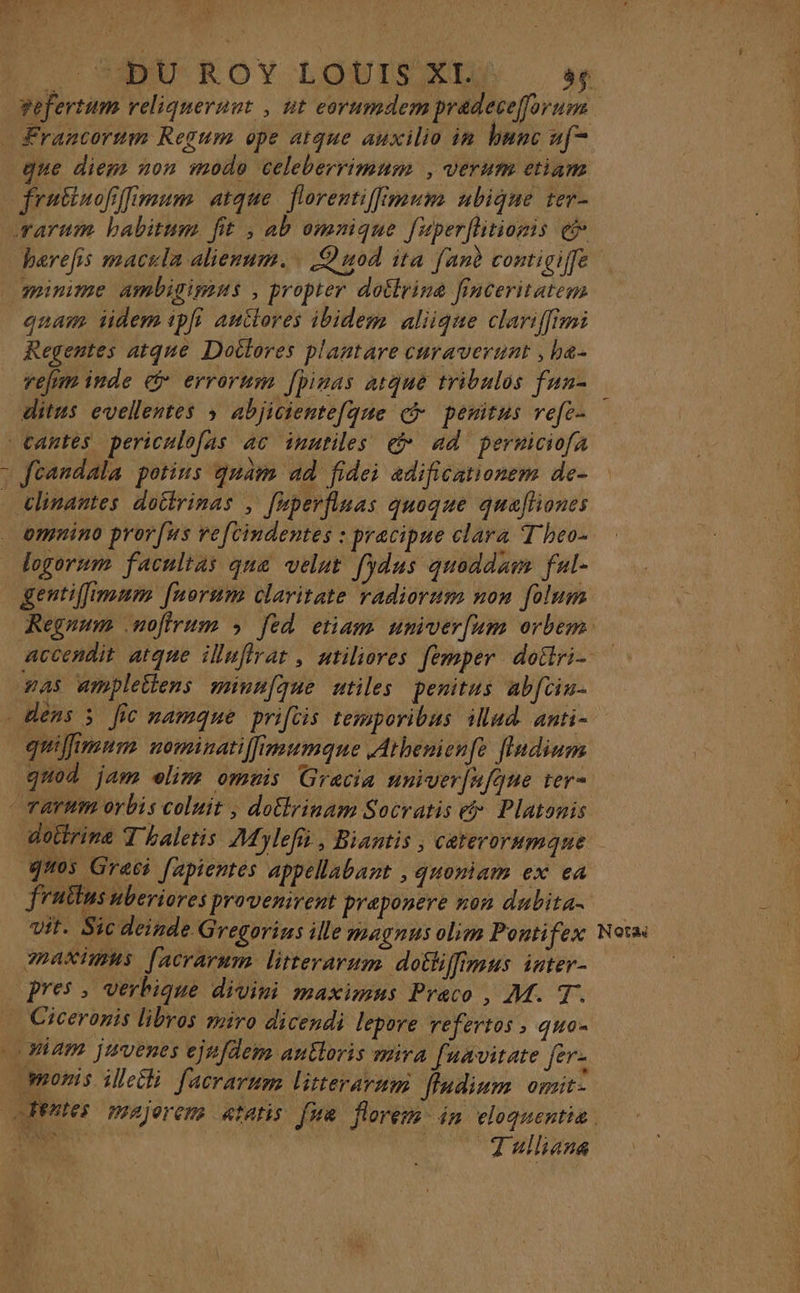 DU ROY LOUIS XI. 35
refertum reliquerunt , ut eorumdem prædeceſſorum
Francorum Regum ope atque auxilio in hunc uſ-
que diem non modo celeberrimum , verum etiam
fructuoſiſſimum atque florentiſſimum ubique ter-
rarum habitum ſit , ab omnique ſuperſtitionis &
hæreſis macula alienum. Quod ita ſanè contigiſſe
minime ambigimus , propter doctrinæ ſinceritatem
quam iidem ipſi auctores ibidem aliique clariſſimi
Regentes atque Doctores plantare curaverunt , hæ-
reſim inde & errorum ſpinas atque tribulos fun-
ditus evellentes , abjicienteſque & penitus reſe-
cantes periculoſas ac inutiles & ad pernicioſa
ſcandala potius quàm ad fidei ædificationem de-
clinantes doctrinas , ſuperfluas quoque quæſtiones
omnino prorſus reſcindentes : præcipue clara Theo-
logorum facultas quæ velut ſydus quoddam ful-
gentiſſimum ſuorum claritate radiorum non ſolum
Regnum noſtrum , ſed etiam univerſum orbem
accendit atque illuſtrat , utiliores ſemper doctri-
nas amplectens minuſque utiles penitus abſcin-
dens ; ſic namque priſcis temporibus illud anti-
quiſſimum nominatiſſimumque Athenienſe ſtudium
quod jam olim omnis Græcia univerſuſque ter-
rarum orbis coluit , doctrinam Socratis & Platonis
doctrinæ Thaletis Myleſii , Biantis , cæterorumque
quos Græci ſapientes appellabant , quoniam ex ea
fructus uberiores provenirent præponere non dubita-
vit. Sic deinde Gregorius ille magnus olim Pontifex Nota:
maximus ſacrarum litterarum doctiſſimus inter-
pres , verbique divini maximus Præco , M. T.
Ciceronis libros miro dicendi lepore refertos , quo-
niam juvenes ejuſdem auctoris mira ſuavitate ſer-
monis illecti ſacrarum litterarum ſtudium omit-
tentes majorem ætatis ſuæ florem in eloquentia
Tulliana